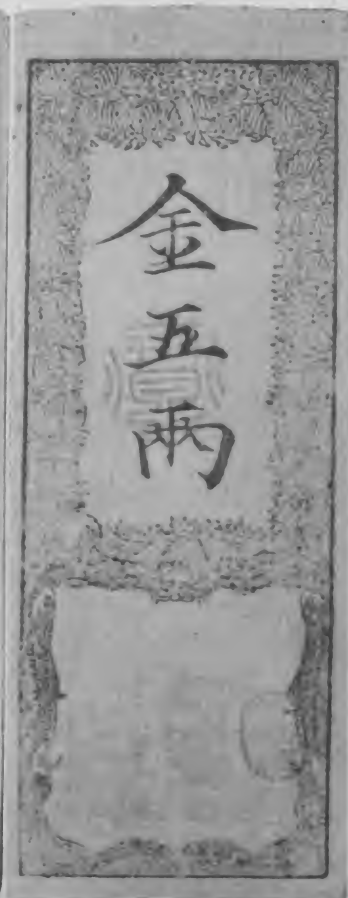 金五兩